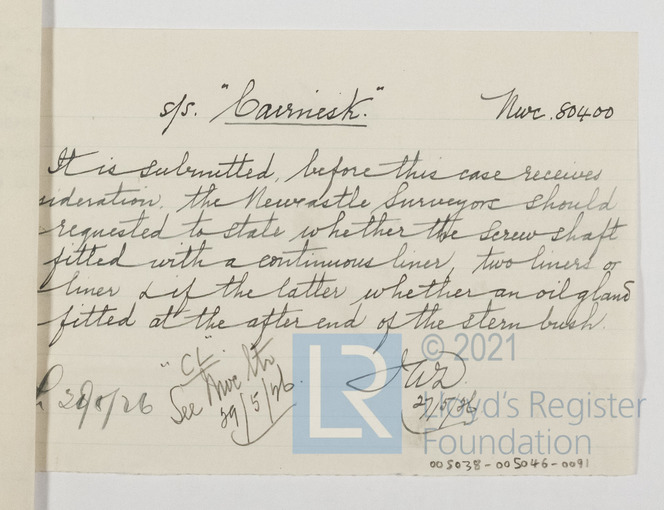 s/s. "Cairnesk." Nwc. 80400
It is submitted, before this case receives
sideration, the Newcastle Surveyors should
requested to state whether the screw shaft
fitted with a continuous liner, two liners or
liner & if the latter whether an oil gland
fitted at the after end of the stern bush.
"CL".
See Nwc ltr
29/5/26.
27/5/26
LR
© 2021
Lloyd's Register
Foundation
005038-005046-0091